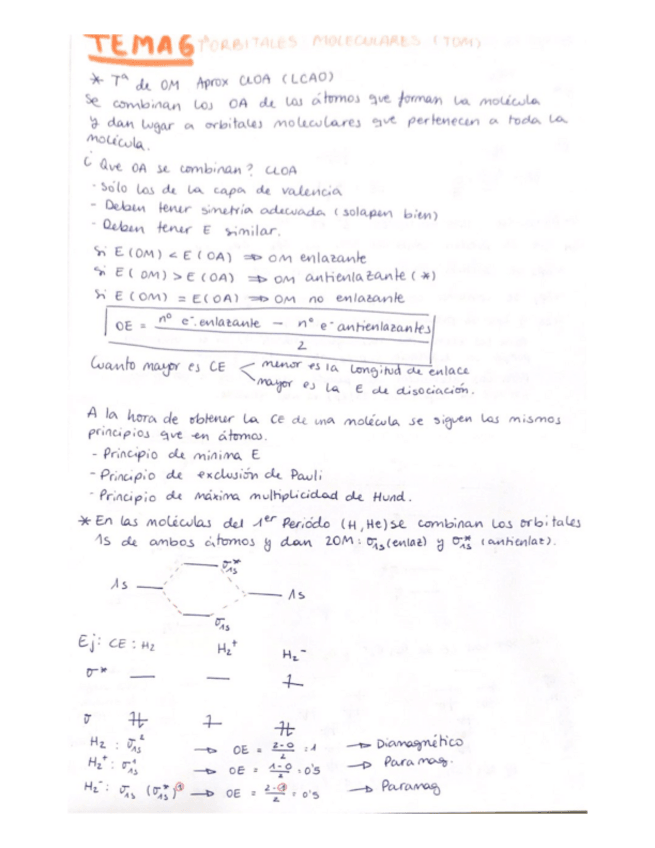 TEMA6 Tª ORBITALES MOLECULARES (TOM)
* Tª de OM Aprox CLOA (LCAO)
Se combinan los OA de los átomos que forman la molécula
y dan lugar a orbitales moleculares que pertenecen a toda la
molécula.
¿Que OA se combinan? CLOA
- Sólo los de la capa de valencia
- Deben tener simetría adecuada (solapen bien)
- Deben tener E similar.
Si E(OM) < E(OA) => OM enlazante
Si E(OM) > E(OA) => OM antienlazante (*)
Si E(OM) = E(OA) => OM no enlazante
OE = nº e⁻ enlazante - nº e⁻ antienlazantes
2
Cuanto mayor es CE < menor es la longitud de enlace
mayor es la E de disociación.
A la hora de obtener la CE de una molécula se siguen los mismos
principios que en átomos.
- Principio de mínima E
- Principio de exclusión de Pauli
- Principio de máxima multiplicidad de Hund.
* En las moléculas del 1er Periódo (H, He) se combinan los orbitales
1s de ambos átomos y dan 2OM: σ1s (enlaz) y σ*1s (antienlaz).
σ*1s
1s
1s
σ1s
Ej: CE: H2 H2⁺ H2⁻
σ*
σ
H2: σ1s² → OE = 2-0/2 = 1 → Diamagnético
H2⁺: σ1s¹ → OE = 1-0/2 = 0'5 → Paramag.
H2⁻: σ1s (σ*1s)¹ → OE = 2-1/2 = 0'5 → Paramag